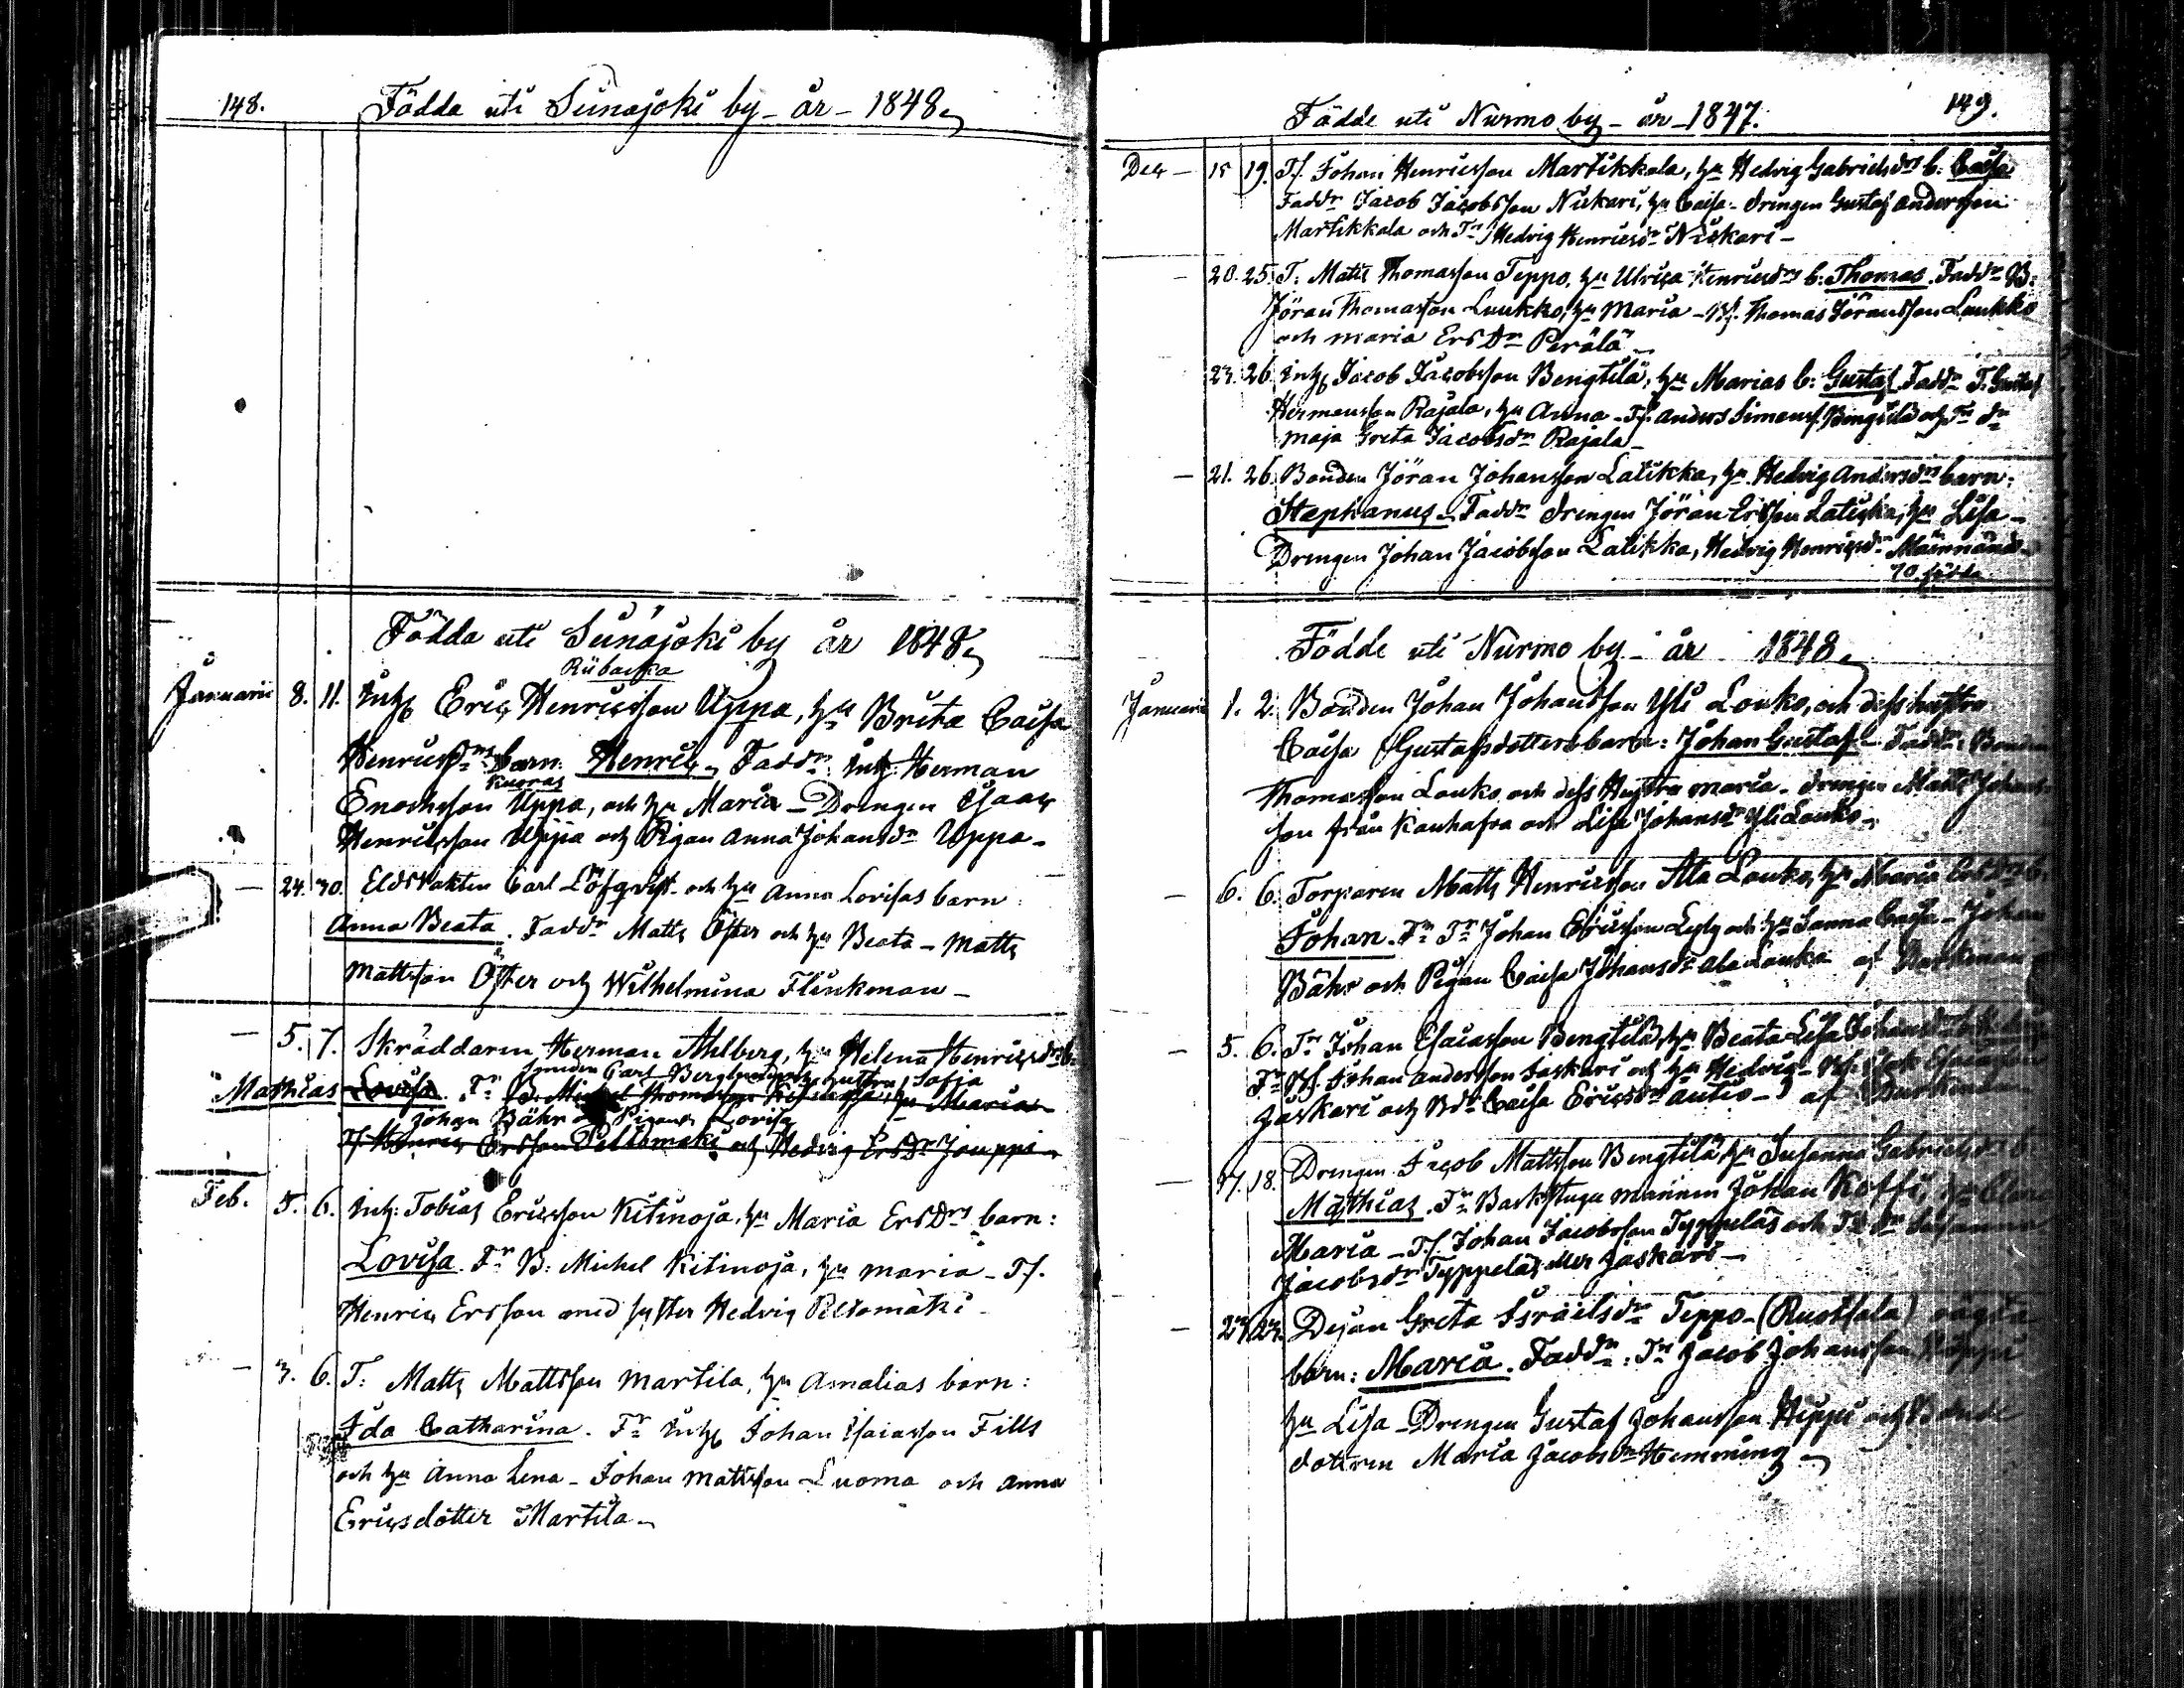 148. Födda uti Seinäjoki by - år - 1848.
Födda uti Seinäjoki by år 1848.
Riibacka
Januarii 8. 11. Inh Eric Henricsson Uppa, hu Brita Caisa
Henricsdrs barn: Henric. Faddr Inh: Herman
Kuoras
Enochsson Uppa, och hu Maria - Drengen Isaac
Henricsson Uppa och Pigan Anna Johansdr Uppa -
- 24. 30. Eldvakten Carl Löfqvist och hu Anna Lovisas barn:
Anna Beata. Faddr Matts Öster och hu Beata - Matts
Mattsson Öster och Wilhelmina Flinkman -
- 5. 7. Skräddaren Herman Ahlberg, hu Helena Henricsdrs b:
Smeden Carl Berglund och hustru Sofia
Mathias Lovisa. Fr B. Michel Thomasson Kitinoja, hu Maria
Johan Bähr Pigan Lovisa
Tf Henric Ersson Peltomäki och Hedvig ErsDr Jouppi
Feb. 5. 6. Inh: Tobias Ericsson Kitinoja, hu Maria ErsDrs barn:
Lovisa. Fr B: Michel Kitinoja, hu Maria - Tf.
Henric Ersson med syster Hedvig Peltomäki -
- 3. 6. T: Matts Mattsson Martila, hu Amalias barn:
Ida Catharina. Fr Inh Johan Esaiasson Fills
och hu Anna Lena - Johan Mattsson Luoma och Anna
Ericsdotter Martila -
Födde uti Nurmo by - år - 1847. 149.
Dec - 15 19. Tf. Johan Henricsson Martikkala, hu Hedvig Gabrielsdrs b: Caisa
Faddr Jacob Jacobsson Niskari, hu Caisa - Drengen Gustaf Andersson
Martikkala och Tr Hedvig Henricsdr Niskari -
- 20. 25. T: Matts Thomasson Teppo, hu Ulrica Henricsdrs b: Thomas. Faddr B:
Jöran Thomasson Luukko, hu Maria - Bf. Thomas Göransson Luukko
och Maria ErsDr Perälä -
23. 26. Inh Jacob Jacobsson Bengtilä, hu Marias b: Gustaf. Faddr T. Gustaf
Hermansson Rajala, hu Anna - Tf. Anders Simonss. Bengtilä och Tr dr
Maja Greta Jacobsdr Rajala -
- 21. 26. Bonden Jöran Johansson Latikka, hu Hedvig Andersdrs barn:
Stephanus - Faddr Drengen Jöran Ersson Latikka, hu Lisa -
Drengen Johan Jacobsson Latikka, Hedvig Henricsdr
70 födda.
Födde uti Nurmo by - år 1848.
Januari 1. 2. Bonden Johan Johansson Yli Louko, och dess hustru
Caisa Gustafsdotters barn: Johan Gustaf - Faddr: Bonden
Thomasson Louko, och dess Hustru Maria - Drengen Matts Johans
son från Kauhava och Lisa Johansdr Yli Louko -
- 6. 6. Torparen Matts Henricsson Ala Louko, hu Maria ErsDrs b:
Johan. Fr Tr Johan Ericsson Lyly och hu Sanna Caisa - Johan
Bähr och Pigan Caisa Johansdr Ala Louko af
- 5. 6. Tr Johan Esaiasson Bengtilä, hu Beata Lisa
Fr Bf. Johan Andersson Jaskari och hu Hedvig -
Jaskari och Bdr Caisa Ericsdr Autio - af
- 17. 18. Drengen Jacob Mattsson Bengtilä, hu Susanna Gabrielsdrs b
Mathias. Fr Backstugu mannen Johan Koffi, hu
Maria - Tf. Johan Jacobsson Typpelä och Tr Dr Susanna
Jacobsdr Typpelä eller Jaskari -
- 23. 23. Dejan Greta Israelsdr Teppo - (Ruotsala) oägta
barn: Maria. Faddr: Tr Jacob Johansson Hippi
hu Lisa - Drengen Gustaf Johansson Hippi och Bonde
dottren Maria Jacobsdr Hemming -